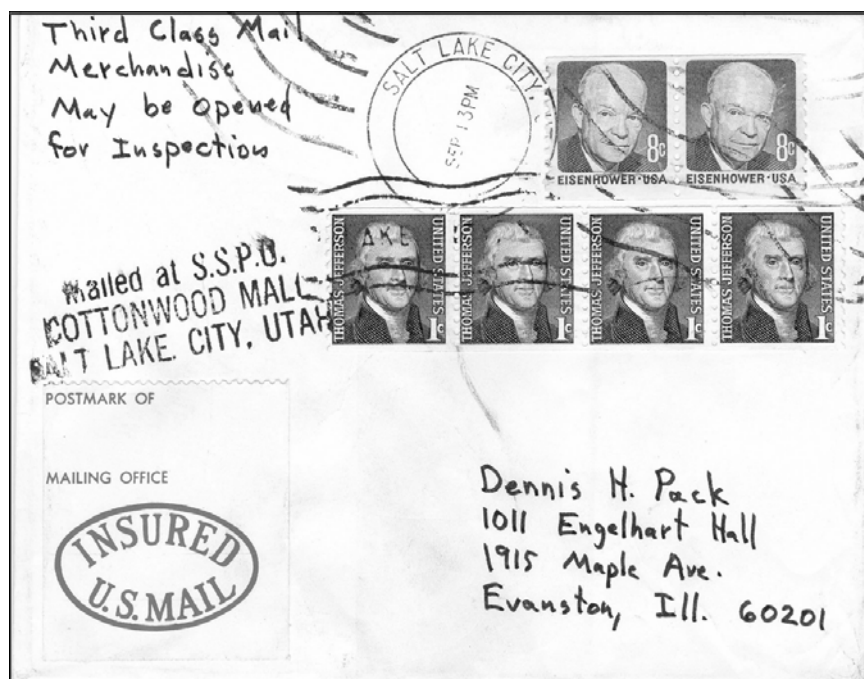 Third Class Mail
Merchandise
May be Opened
for Inspection
SALT LAKE CITY,
SEP 13 PM
8c 8c
EISENHOWER·USA EISENHOWER·USA
THOMAS JEFFERSON UNITED STATES 1c
THOMAS JEFFERSON UNITED STATES 1c
THOMAS JEFFERSON UNITED STATES 1c
THOMAS JEFFERSON UNITED STATES 1c
AKE
Mailed at S.S.P.O.
COTTONWOOD MALL
SALT LAKE CITY, UTAH
POSTMARK OF
MAILING OFFICE
INSURED
U.S. MAIL
Dennis H. Pack
1011 Engelhart Hall
1915 Maple Ave.
Evanston, Ill. 60201